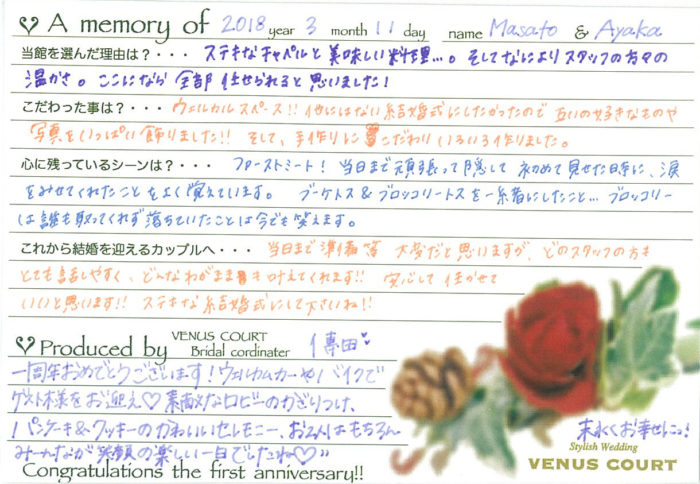 A memory of 2018 year 3 month 11 day name Masato & Ayaka
当館を選んだ理由は？・・・ ステキなチャペルと美味しい料理…。そしてなによりスタッフの方々の
温かさ。ここになら全部任せられると思いました！
こだわった事は？・・・ウェルカムスペース!! 他にはない結婚式にしたかったので互いの好きなものや
写真をいっぱい飾りました!! そして、手作りにこだわりいろいろ作りました。
心に残っているシーンは？・・・ ファーストミート！ 当日まで頑張って隠して初めて見せた時に、涙
をみせてくれたことをよく覚えています。 ブーケトス&ブロッコリートスを一緒にしたこと…ブロッコリー
は誰も取ってくれず落ちていたことは今でも笑えます。
これから結婚を迎えるカップルへ・・・ 当日まで準備等 大変だと思いますが、どのスタッフの方も
とても話しやすく、どんなわがままも叶えてくれます!! 安心して任かせて
いいと思います!! ステキな結婚式にして下さいね!!
Produced by VENUS COURT Bridal cordinater 傳田
一周年おめでとうございます！ウェルカムカーやバイクで
ゲスト様をお迎え♡素敵なロビーのかざりつけ、
パンケーキ&クッキーのかわいいセレモニー、お2人はもちろん
みーんなが笑顔の楽しい一日でしたね♡"
末永くお幸せにっ！
Stylish Wedding
VENUS COURT
Congratulations the first anniversary!!